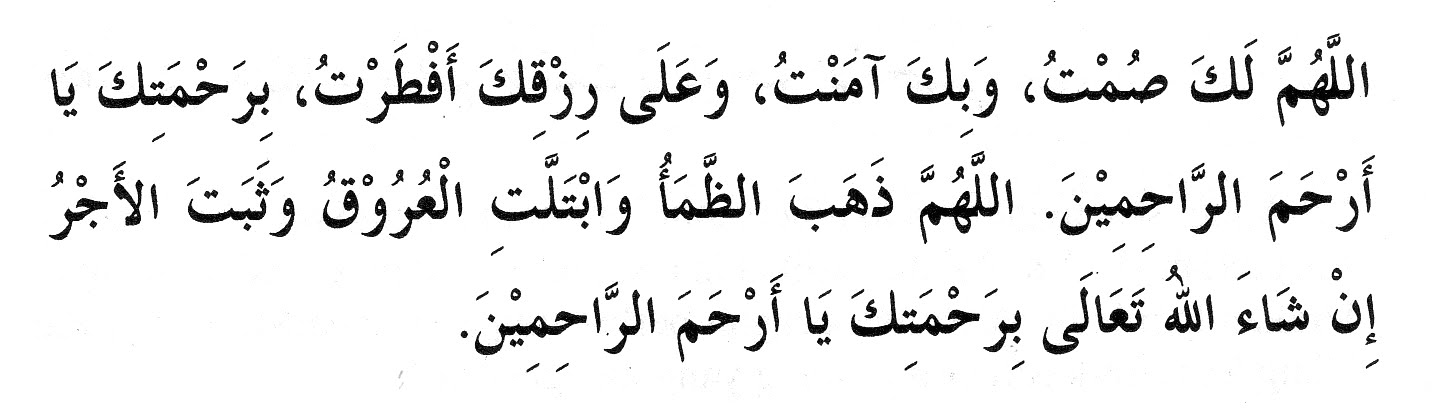 اللَّهُمَّ لَكَ صُمْتُ، وَبِكَ آمَنْتُ، وَعَلَى رِزْقِكَ أَفْطَرْتُ، بِرَحْمَتِكَ يَا
أَرْحَمَ الرَّاحِمِيْنَ. اللَّهُمَّ ذَهَبَ الظَّمَأُ وَابْتَلَّتِ الْعُرُوْقُ وَثَبَتَ الأَجْرُ
إِنْ شَاءَ اللهُ تَعَالَى بِرَحْمَتِكَ يَا أَرْحَمَ الرَّاحِمِيْنَ.